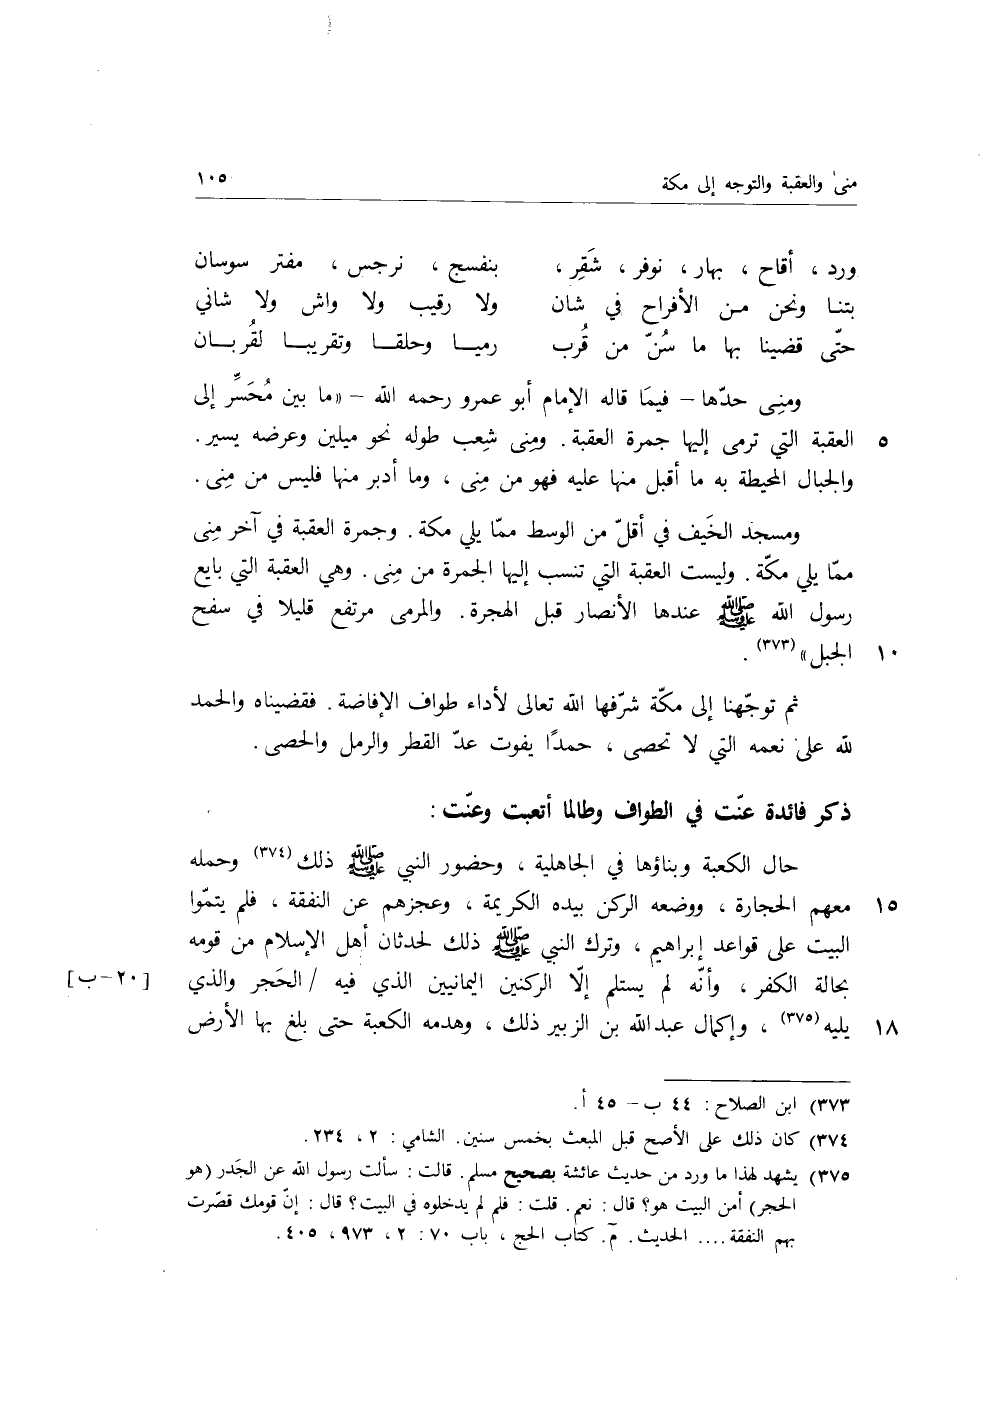 منىٰ والعقبة والتوجه إلى مكة ١٠٥
ورد ، أقاح ، بهار ، نوفر ، شَقِر ، بنفسج ، نرجس ، مفتر سوسان
بتنا ونحن من الأفراح في شان ولا رقيب ولا واش ولا شاني
حتّى قضينا بها ما سُنّ من قُرب رميا وحلقا وتقريبا لقُربان
ومنِى حدّها – فيمَا قاله الإمام أبو عمرو رحمه الله – «ما بين مُحَسِّر إلى
٥ العقبة التي ترمى إليها جمرة العقبة . ومِنى شِعب طوله نحو ميلين وعرضه يسير .
والجبال المحيطة به ما أقبل منها عليه فهو من مِنى ، وما أدبر منها فليس من مِنى .
ومسجد الخَيف في أقلّ من الوسط ممّا يلي مكة . وجمرة العقبة في آخر مِنى
ممّا يلي مكّة . وليست العقبة التي تنسب إليها الجمرة من مِنى . وهي العقبة التي بايع
رسول الله ﷺ عندها الأنصار قبل الهجرة . والمرمى مرتفع قليلا في سفح
١٠ الجبل» (٣٧٣) .
ثم توجّهنا إلى مكّة شرّفها الله تعالى لأداء طواف الإفاضة . فقضيناه والحمد
لله على نعمه التي لا تحصى ، حمدًا يفوت عدّ القطر والرمل والحصى .
ذكر فائدة عنّت في الطواف وطالما أتعبت وعنّت :
حال الكعبة وبناؤها في الجاهلية ، وحضور النبي ﷺ ذلك (٣٧٤) وحمله
١٥ معهم الحجارة ، ووضعه الركن بيده الكريمة ، وعجزهم عن النفقة ، فلم يتمّوا
البيت على قواعد إبراهيم ، وترك النبي ﷺ ذلك لحدثان أهل الإسلام من قومه
بحالة الكفر ، وأنّه لم يستلم إلّا الركنين اليمانيين الذي فيه / الحَجر والذي [٢٠-ب]
١٨ يليه (٣٧٥) ، وإكمال عبدالله بن الزبير ذلك ، وهدمه الكعبة حتى بلغ بها الأرض
٣٧٣) ابن الصلاح : ٤٤ ب – ٤٥ أ.
٣٧٤) كان ذلك على الأصح قبل المبعث بخمس سنين. الشامي : ٢ ، ٢٣٤ .
٣٧٥) يشهد لهذا ما ورد من حديث عائشة بصحيح مسلم. قالت : سألت رسول الله عن الجَدر (هو
الحجر) أمن البيت هو؟ قال : نعم. قلت : فلم لم يدخلوه في البيت؟ قال : إنّ قومك قصّرت
بهم النفقة .... الحديث. مَ. كتاب الحج ، باب ٧٠ : ٢ ، ٩٧٣ ، ٤٠٥ .